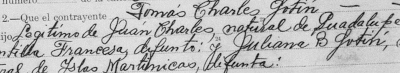 Tomas Charles Gotin
2.—Que el contrayente
legitimo de Juan Charles, natural de Guadalupe
Antilla Francesa, difunto: y Juliana B Gotin,
de Islas Martinicas, difunta: